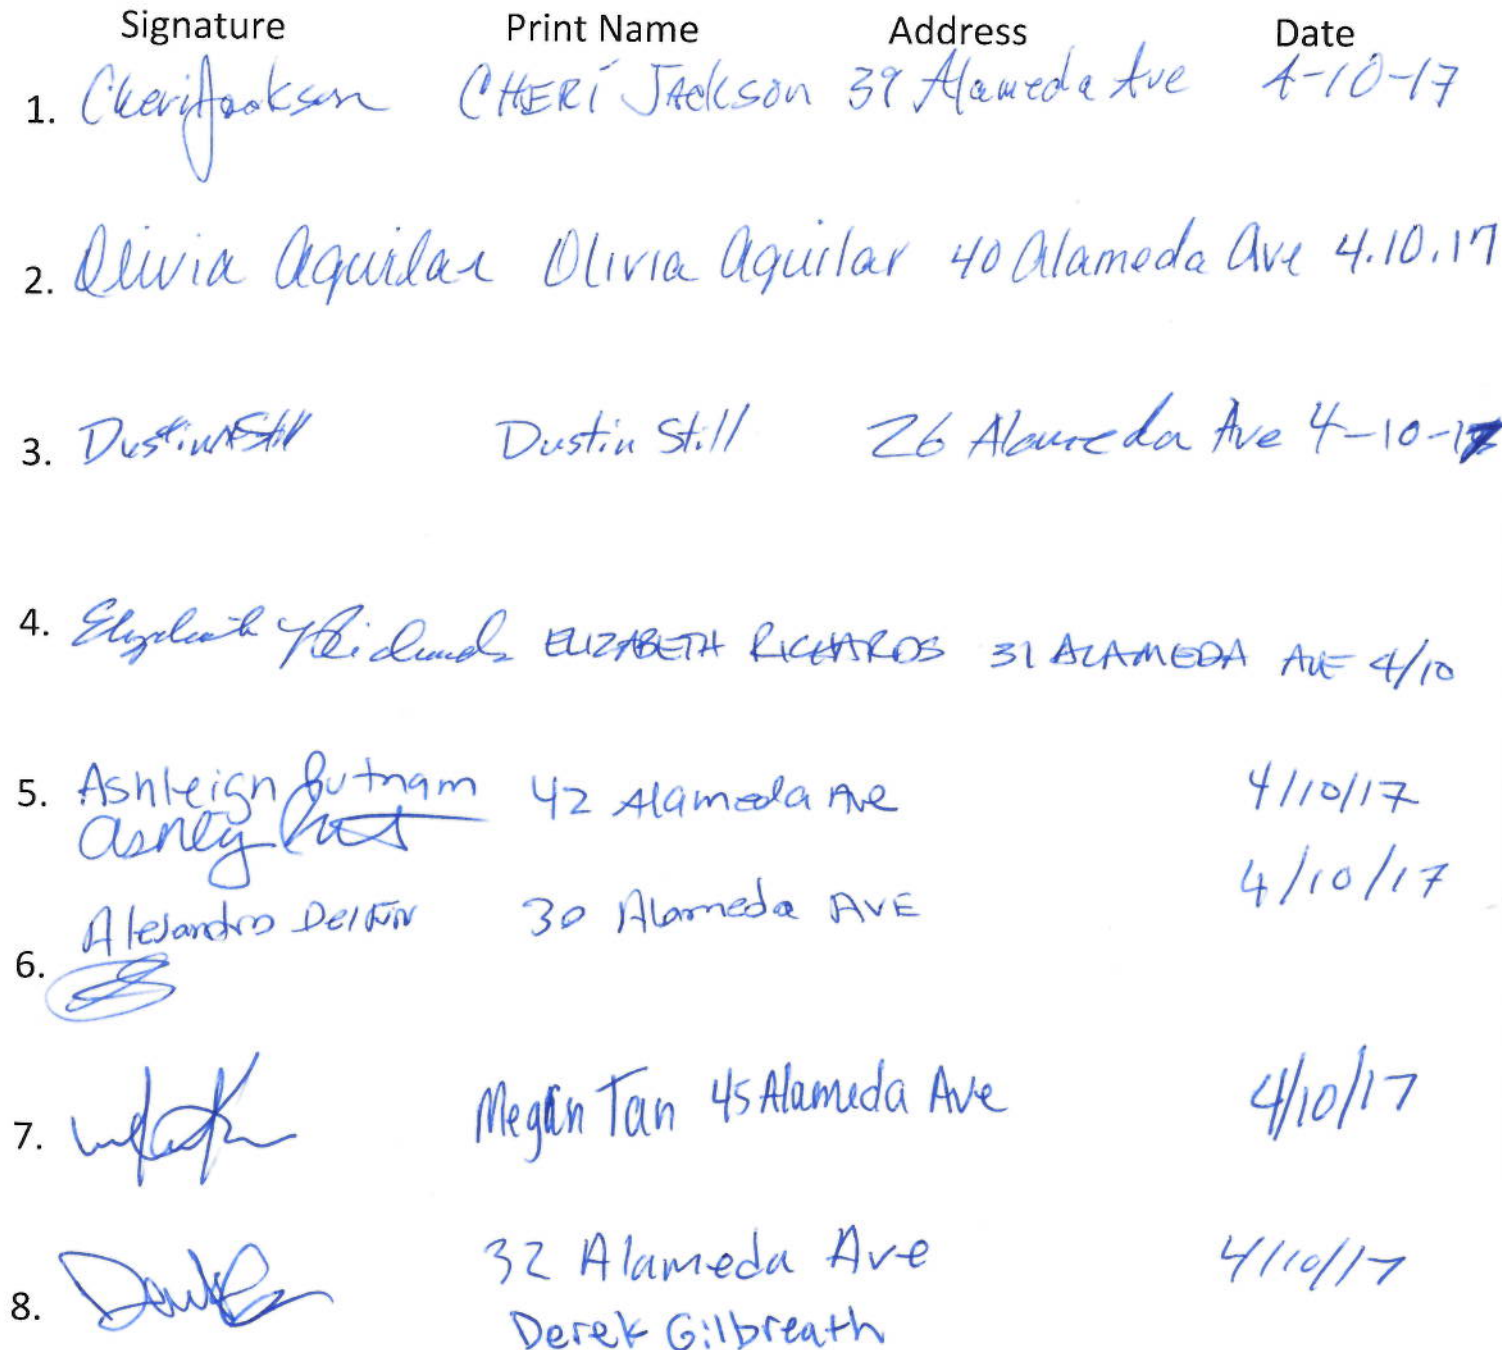 Signature Print Name Address Date
1. Cheri Jackson CHERI JACKSON 39 Alameda Ave 4-10-17
2. Olivia Aguilar Olivia Aguilar 40 Alameda Ave 4.10.17
3. Dustin Still Dustin Still 26 Alameda Ave 4-10-17
4. Elizabeth Richards ELIZABETH RICHARDS 31 ALAMEDA AVE 4/10
5. Ashleigh Putnam 42 Alameda Ave 4/10/17
Alejandro Delfin 30 Alameda AVE 4/10/17
6.
7. Megan Tan 45 Alameda Ave 4/10/17
32 Alameda Ave 4/10/17
8. Derek Gilbreath